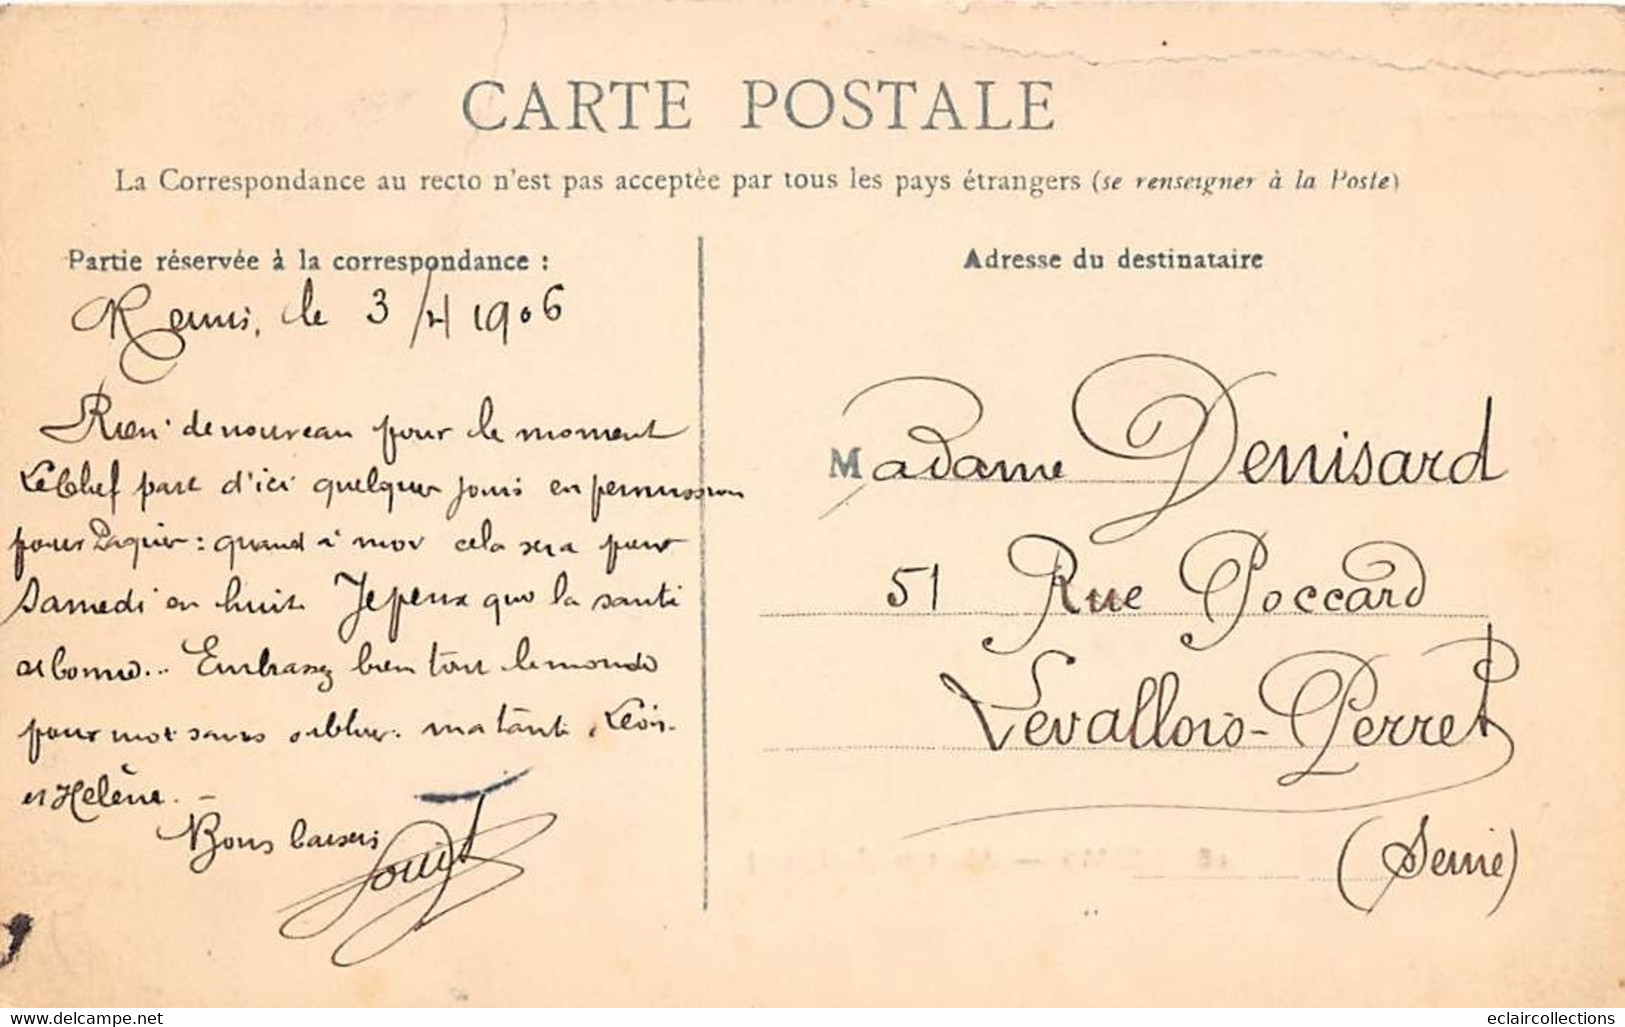 CARTE POSTALE
La Correspondance au recto n'est pas acceptée par tous les pays étrangers (se renseigner à la Poste)
Partie réservée à la correspondance :
le 3/4 1906
Rien de nouveau pour le moment
Le Chef part d'ici quelques jours en permission
pour Paques : quand à moi cela sera pour
Samedi en huit. Je pense que la santé
est bonne... Embrassez bien tout le monde
pour moi sans oublier ma tante,
et Hélène. -
Bons baisers
Adresse du destinataire
Madame Denisard
51 Rue Poccard
Levallois-Perret
(Seine)
delcampe.net
eclaircollections